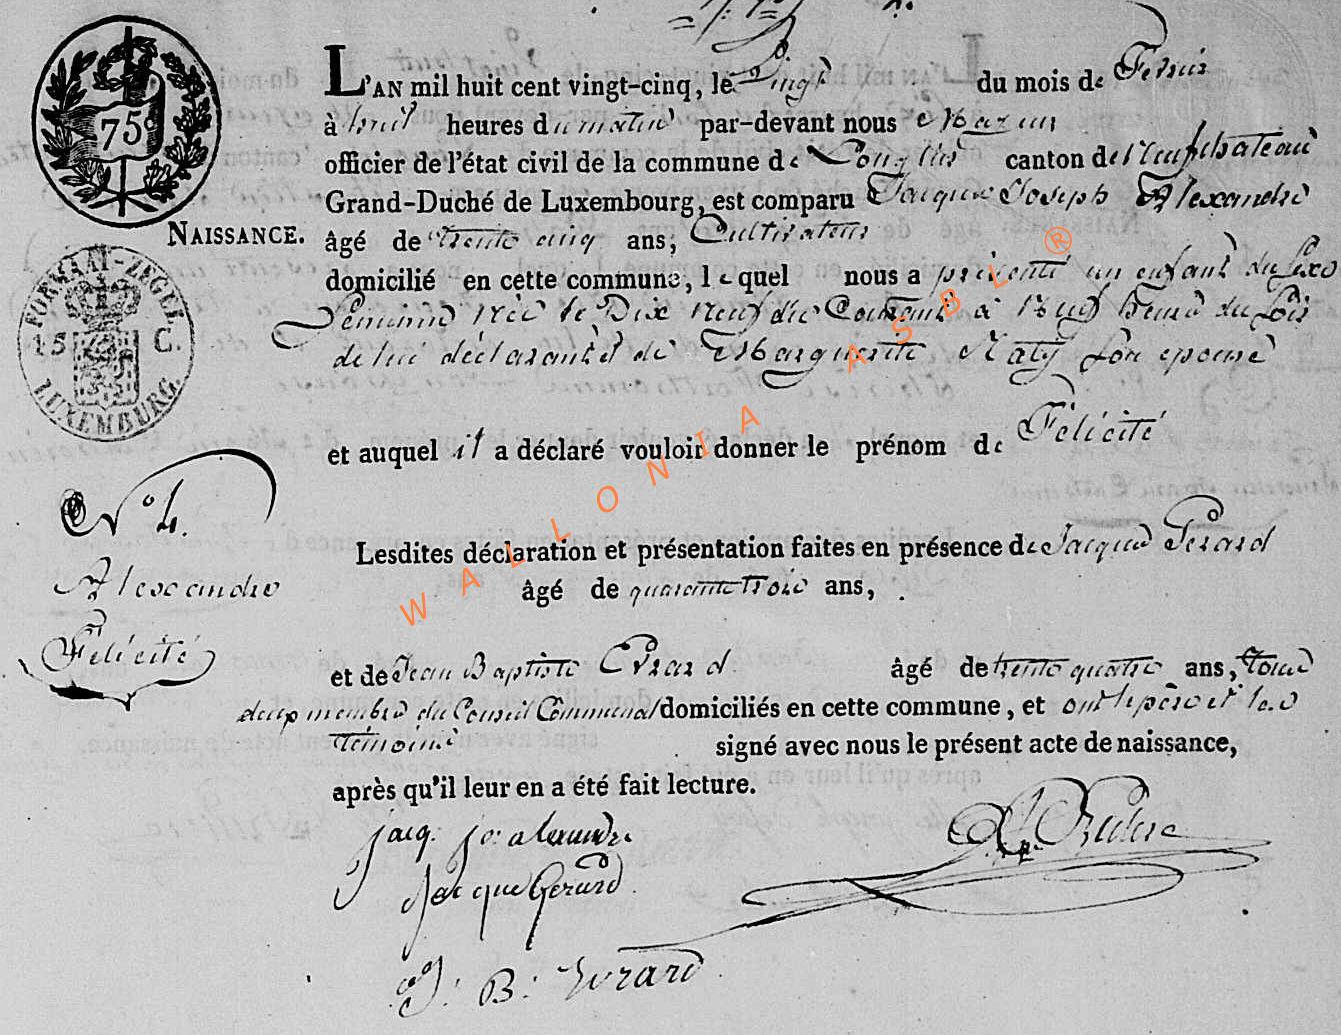 75c
FORMAAT-ZEGEL.
15 C.
LUXEMBURG.
NAISSANCE.
L'AN mil huit cent vingt-cinq, le Vingt du mois de Fevrier
à huit heures du matin par-devant nous Maxeur
officier de l'état civil de la commune de Longlier canton de Neufchateau
Grand-Duché de Luxembourg, est comparu Jacques Joseph Alexandre
âgé de trente cinq ans, Cultivateur
domicilié en cette commune, lequel nous a présenté un enfant du sexe
Feminin née le Dix neuf du Courant à neuf heures du soir
de lui déclarant et de Marguerite Maty son epouse
et auquel il a déclaré vouloir donner le prénom de Félicité
N° 4.
Alexandre
Félicité
Lesdites déclaration et présentation faites en présence de Jacques Gerard
âgé de quarante trois ans,
et de Jean Baptiste Evrard âgé de trente quatre ans, tous
deux membres du Conseil Communal domiciliés en cette commune, et ont le père et les
témoins signé avec nous le présent acte de naissance,
après qu'il leur en a été fait lecture.
jacq. jo: alexandre
Jacque Gerard
J: B: Evrard
WALLONIA ASBL ®